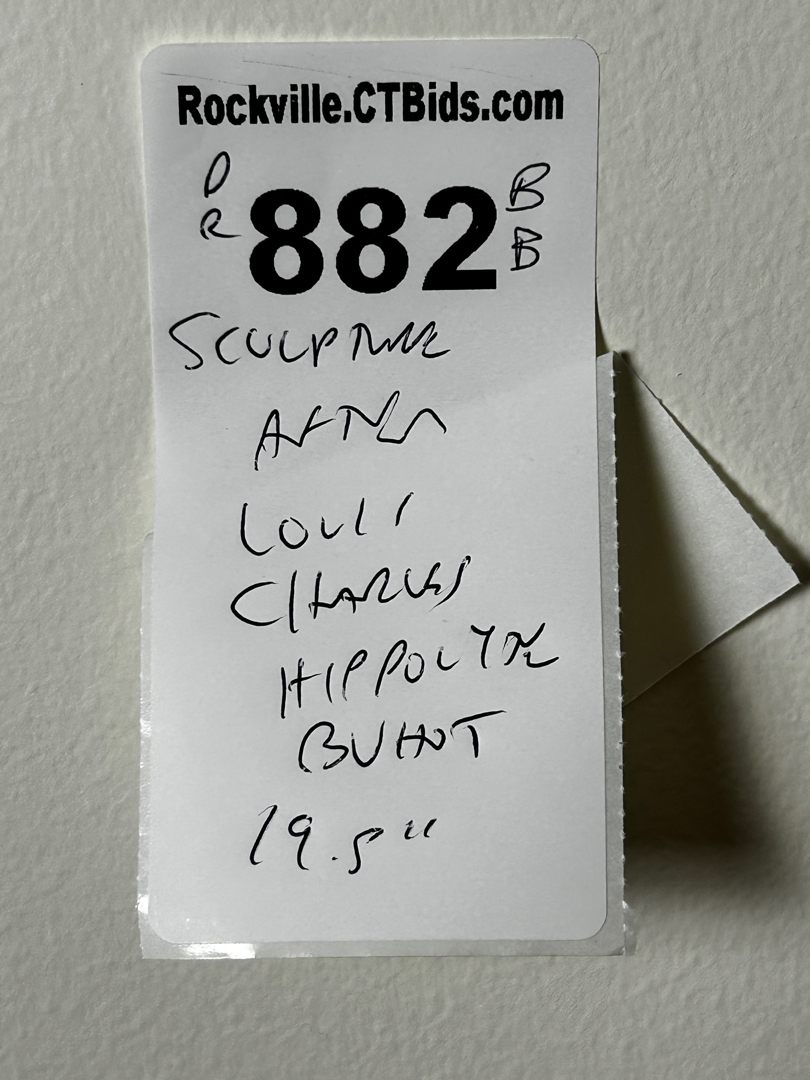 Rockville.CTBids.com
DR 882 BB
SCULPTURE
AFTER
LOUIS
CHARLES
HIPPOLYTE
BUHOT
19.5"